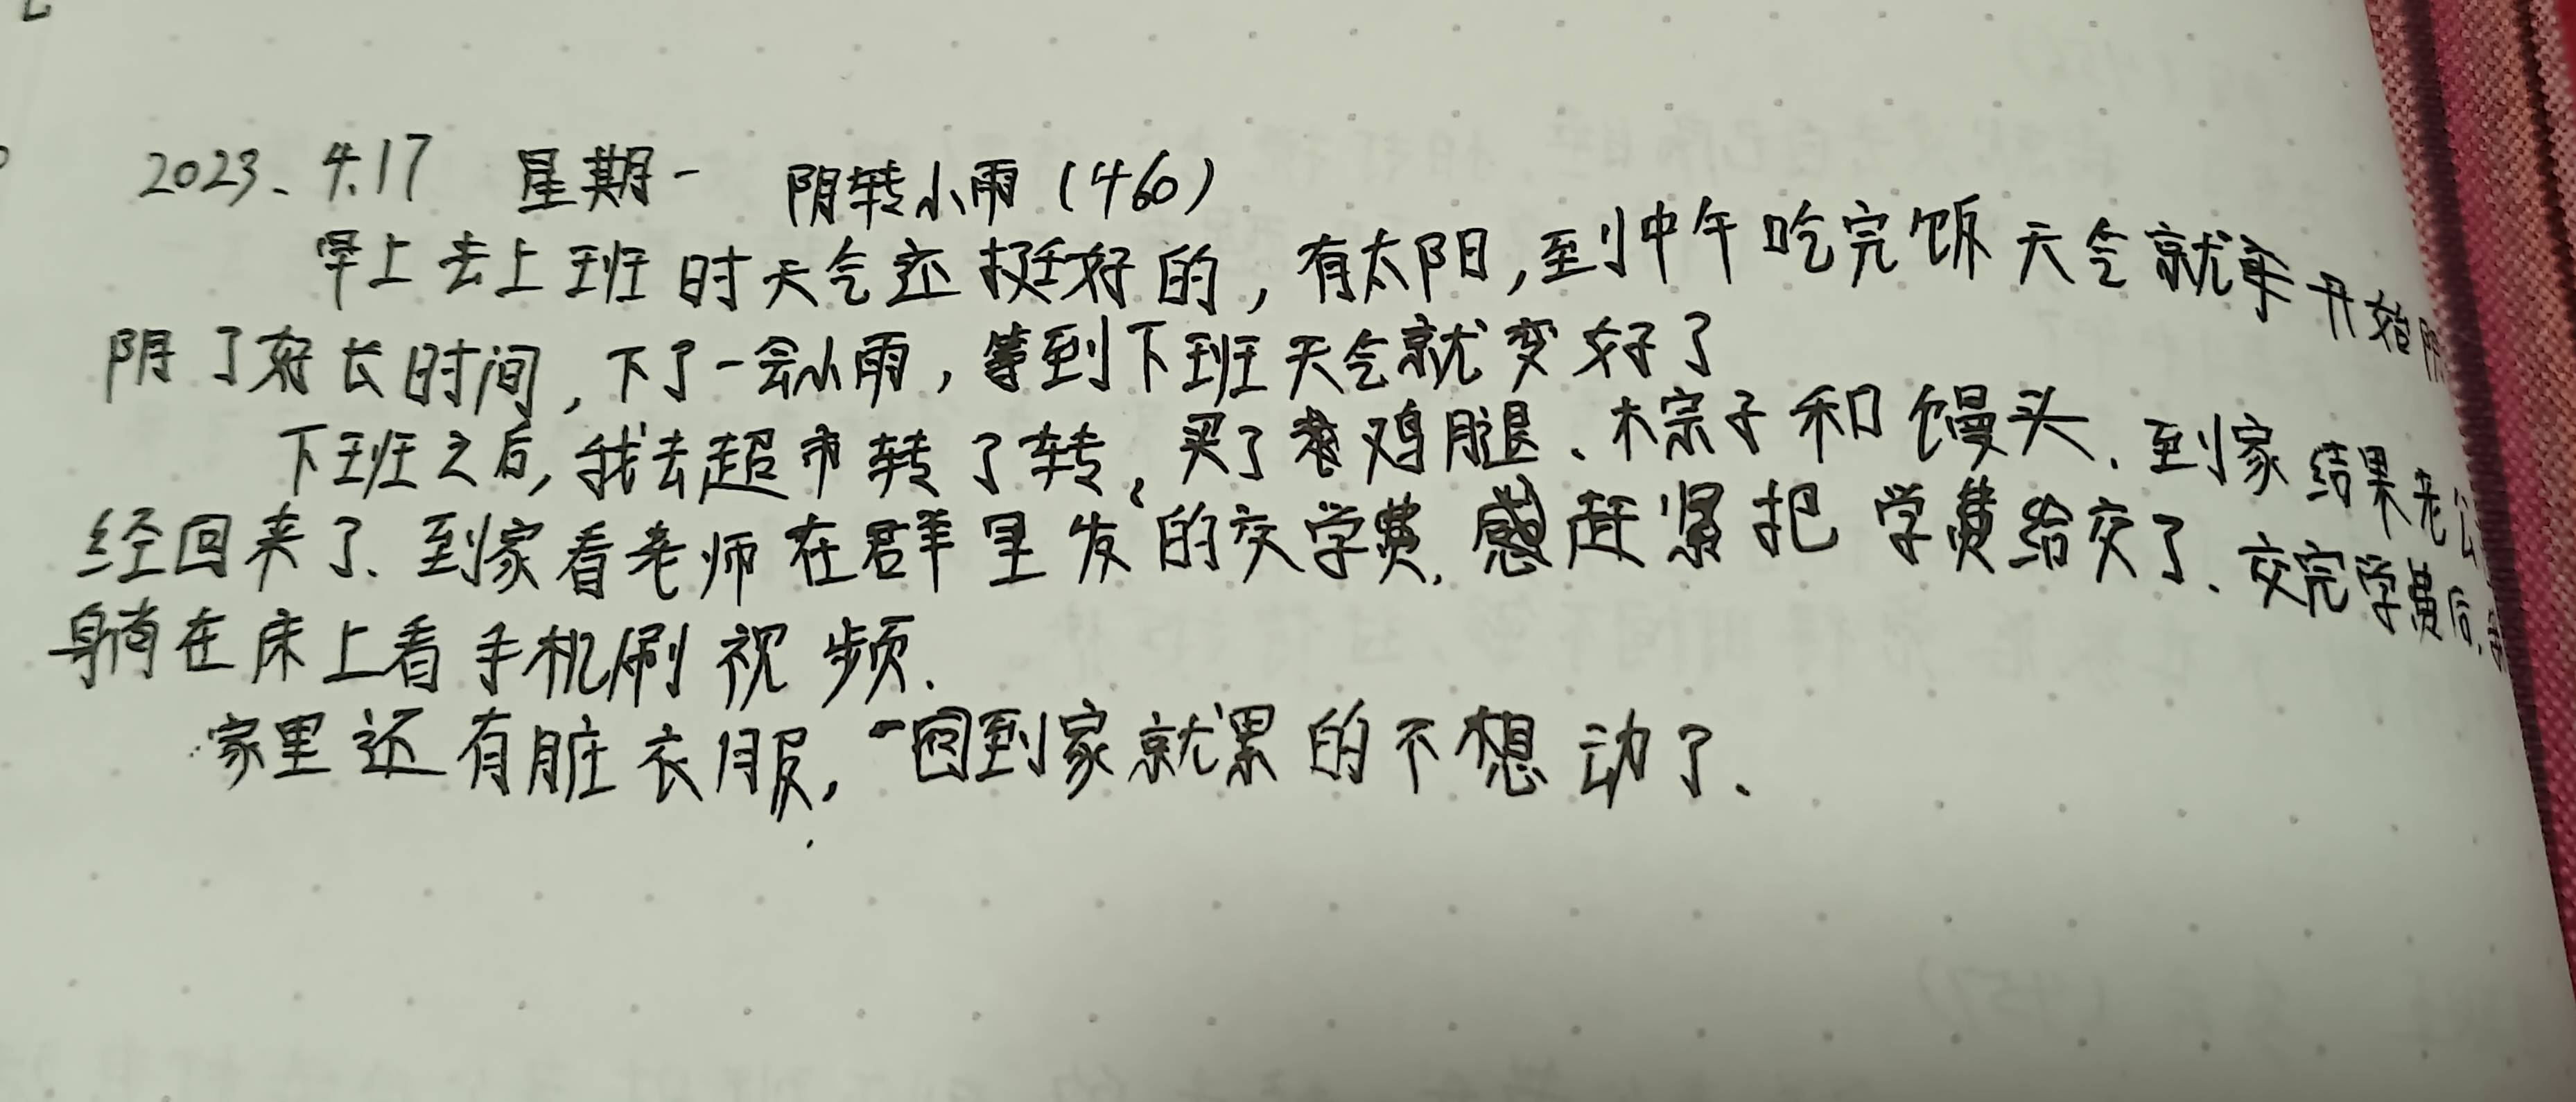 2023、4.17 星期一 阴转小雨(460)
早上去上班时天气还挺好的,有太阳,到中午吃完饭天气就开始阴
阴了好长时间,下了一会小雨,等到下班天气就变好了
下班之后,我去超市转了转,买了鸡腿、棕子和馒头.到家结果老公
经回来了.到家看老师在群里发的交学费.赶紧把学费给交了.交完学费后,
躺在床上看手机刷视频.
家里还有脏衣服,一回到家就累的不想动了、